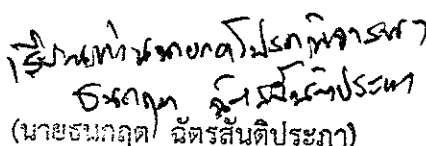 เรียนท่านนายกฯโปรดพิจารณา
ธนกฤต ฉัตรสันติประภา
(นายธนกฤต ฉัตรสันติประภา)